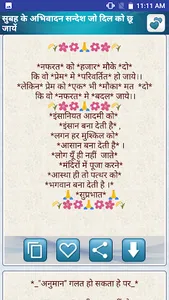 11:11 AM
सुबह के अभिवादन सन्देश जो दिल को छू
जायें
*नफरत* को *हजार* मौके *दो*
कि वो *प्रेम* मे *परिवर्तित* हो जाये।।
*लेकिन* प्रेम को *एक* भी *मौका* मत *दो*
कि वो *नफरत* मे *बदल* जाये।।
*इंसानियत आदमी को*
*इंसान बना देती है* ,
*लगन हर मुश्किल को*
*आसान बना देती है* ।
*लोग यूँ ही नहीं जाते*
*मंदिरों में पूजा करने*
*आस्था ही तो पत्थर को*
*भगवान बना देती है ।*
*सुप्रभात*
*_"अनुमान" गलत हो सकता हे पर_*